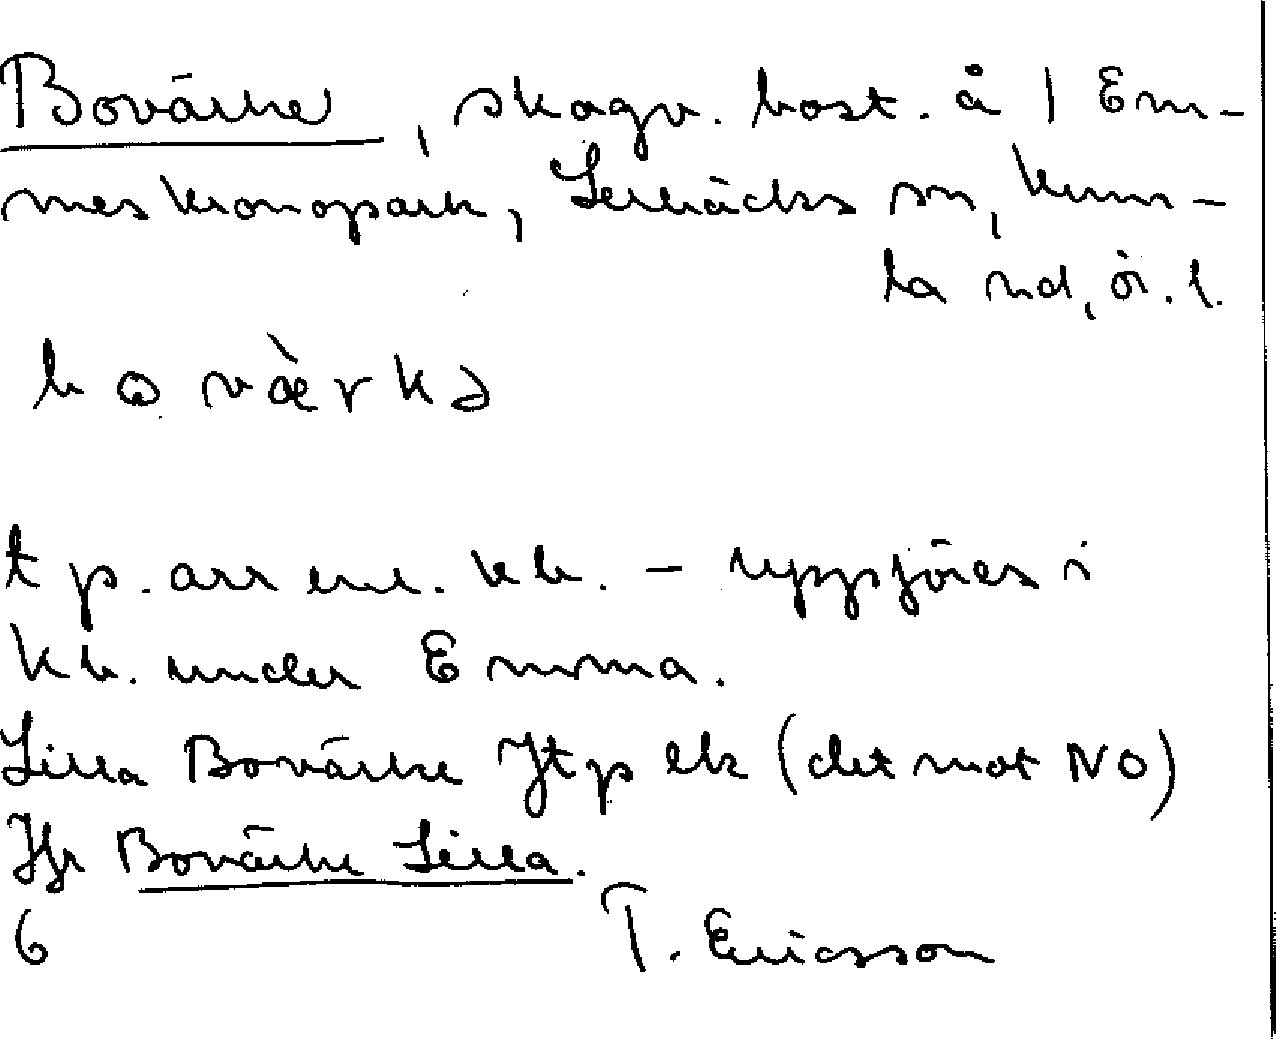 Bovärke, skogv. bost. å 1 Em-
mes kronopark, Lerbäcks sn, Kum-
la hd, ör. l.
bo vàrkə
t p. arr enl. kb. – uppföres i
kb. under Emma.
Lilla Bovärke Jtp ek (det mot NO)
Jfr Bovärke Lilla.
6 T. Ericsson